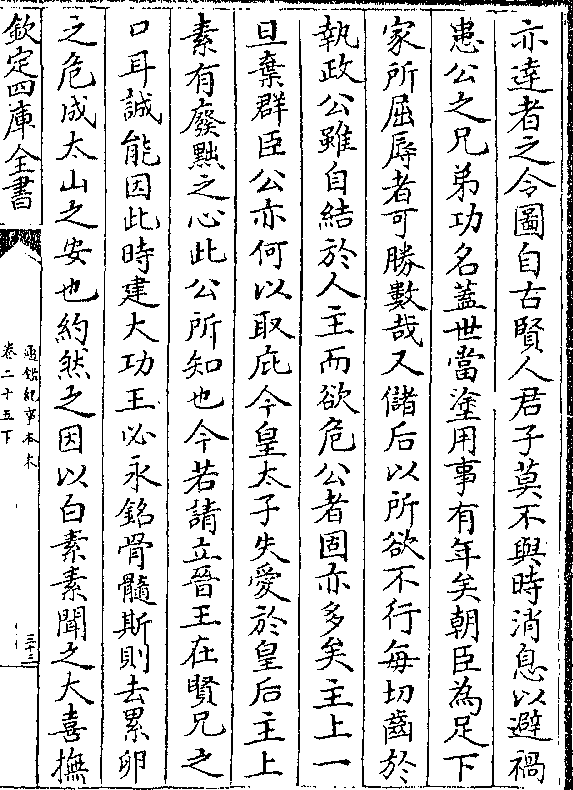 亦達者之令圖自古賢人君子莫不與時消息以避禍
患公之兄弟功名蓋世當塗用事有年矣朝臣為足下
家所屈辱者可勝數哉又儲后以所欲不行每切齒於
執政公雖自結於人主而欲危公者固亦多矣主上一
旦棄群臣公亦何以取庇今皇太子失愛於皇后主上
素有廢黜之心此公所知也今若請立晉王在賢兄之
口耳誠能因此時建大功王必永銘骨髓斯則去累卵
之危成太山之安也約然之因以白素素聞之大喜撫
欽定四庫全書
通鑑紀事本末
卷二十五下
三十三